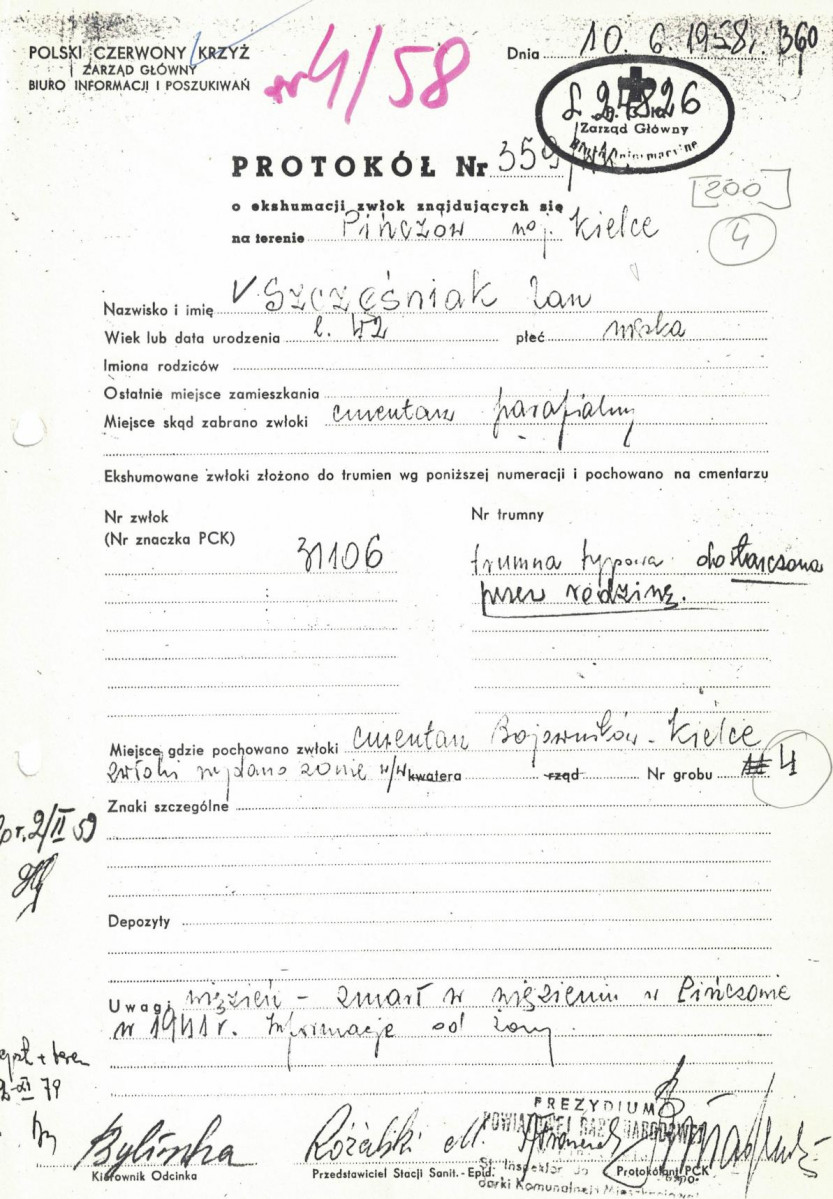 POLSKI CZERWONY KRZYŻ
ZARZĄD GŁÓWNY
BIURO INFORMACJI I POSZUKIWAŃ
nr 4/58
Dnia 10. 6. 1958r. 360
L 24826
Zarząd Główny
PROTOKÓŁ Nr 359
[200]
4
o ekshumacji zwłok znajdujących się
na terenie Pińczow woj. Kielce
Nazwisko i imię V Szcześniak Jan
Wiek lub data urodzenia l. 42 płeć męska
Imiona rodziców
Ostatnie miejsce zamieszkania
Miejsce skąd zabrano zwłoki cmentarz parafialny
Ekshumowane zwłoki złożono do trumien wg poniższej numeracji i pochowano na cmentarzu
Nr zwłok
(Nr znaczka PCK) 31106
Nr trumny
trumna typowa dostarczona
przez rodzinę.
Miejsce gdzie pochowano zwłoki cmentarz Bojowników - Kielce
zwłoki wydano żonie w/w kwatera rząd Nr grobu 4
Znaki szczególne
2/II 59
Depozyty
Uwagi więzień - zmarł w więzieniu w Pińczowie
w 1941r. Informacje od żony
79
PREZYDIUM
POWIATOWEJ RADY NARODOWEJ
Bylinska
Różalski M.
Kierownik Odcinka
Przedstawiciel Stacji Sanit.-Epid.
St. Inspektor
Protokólant PCK